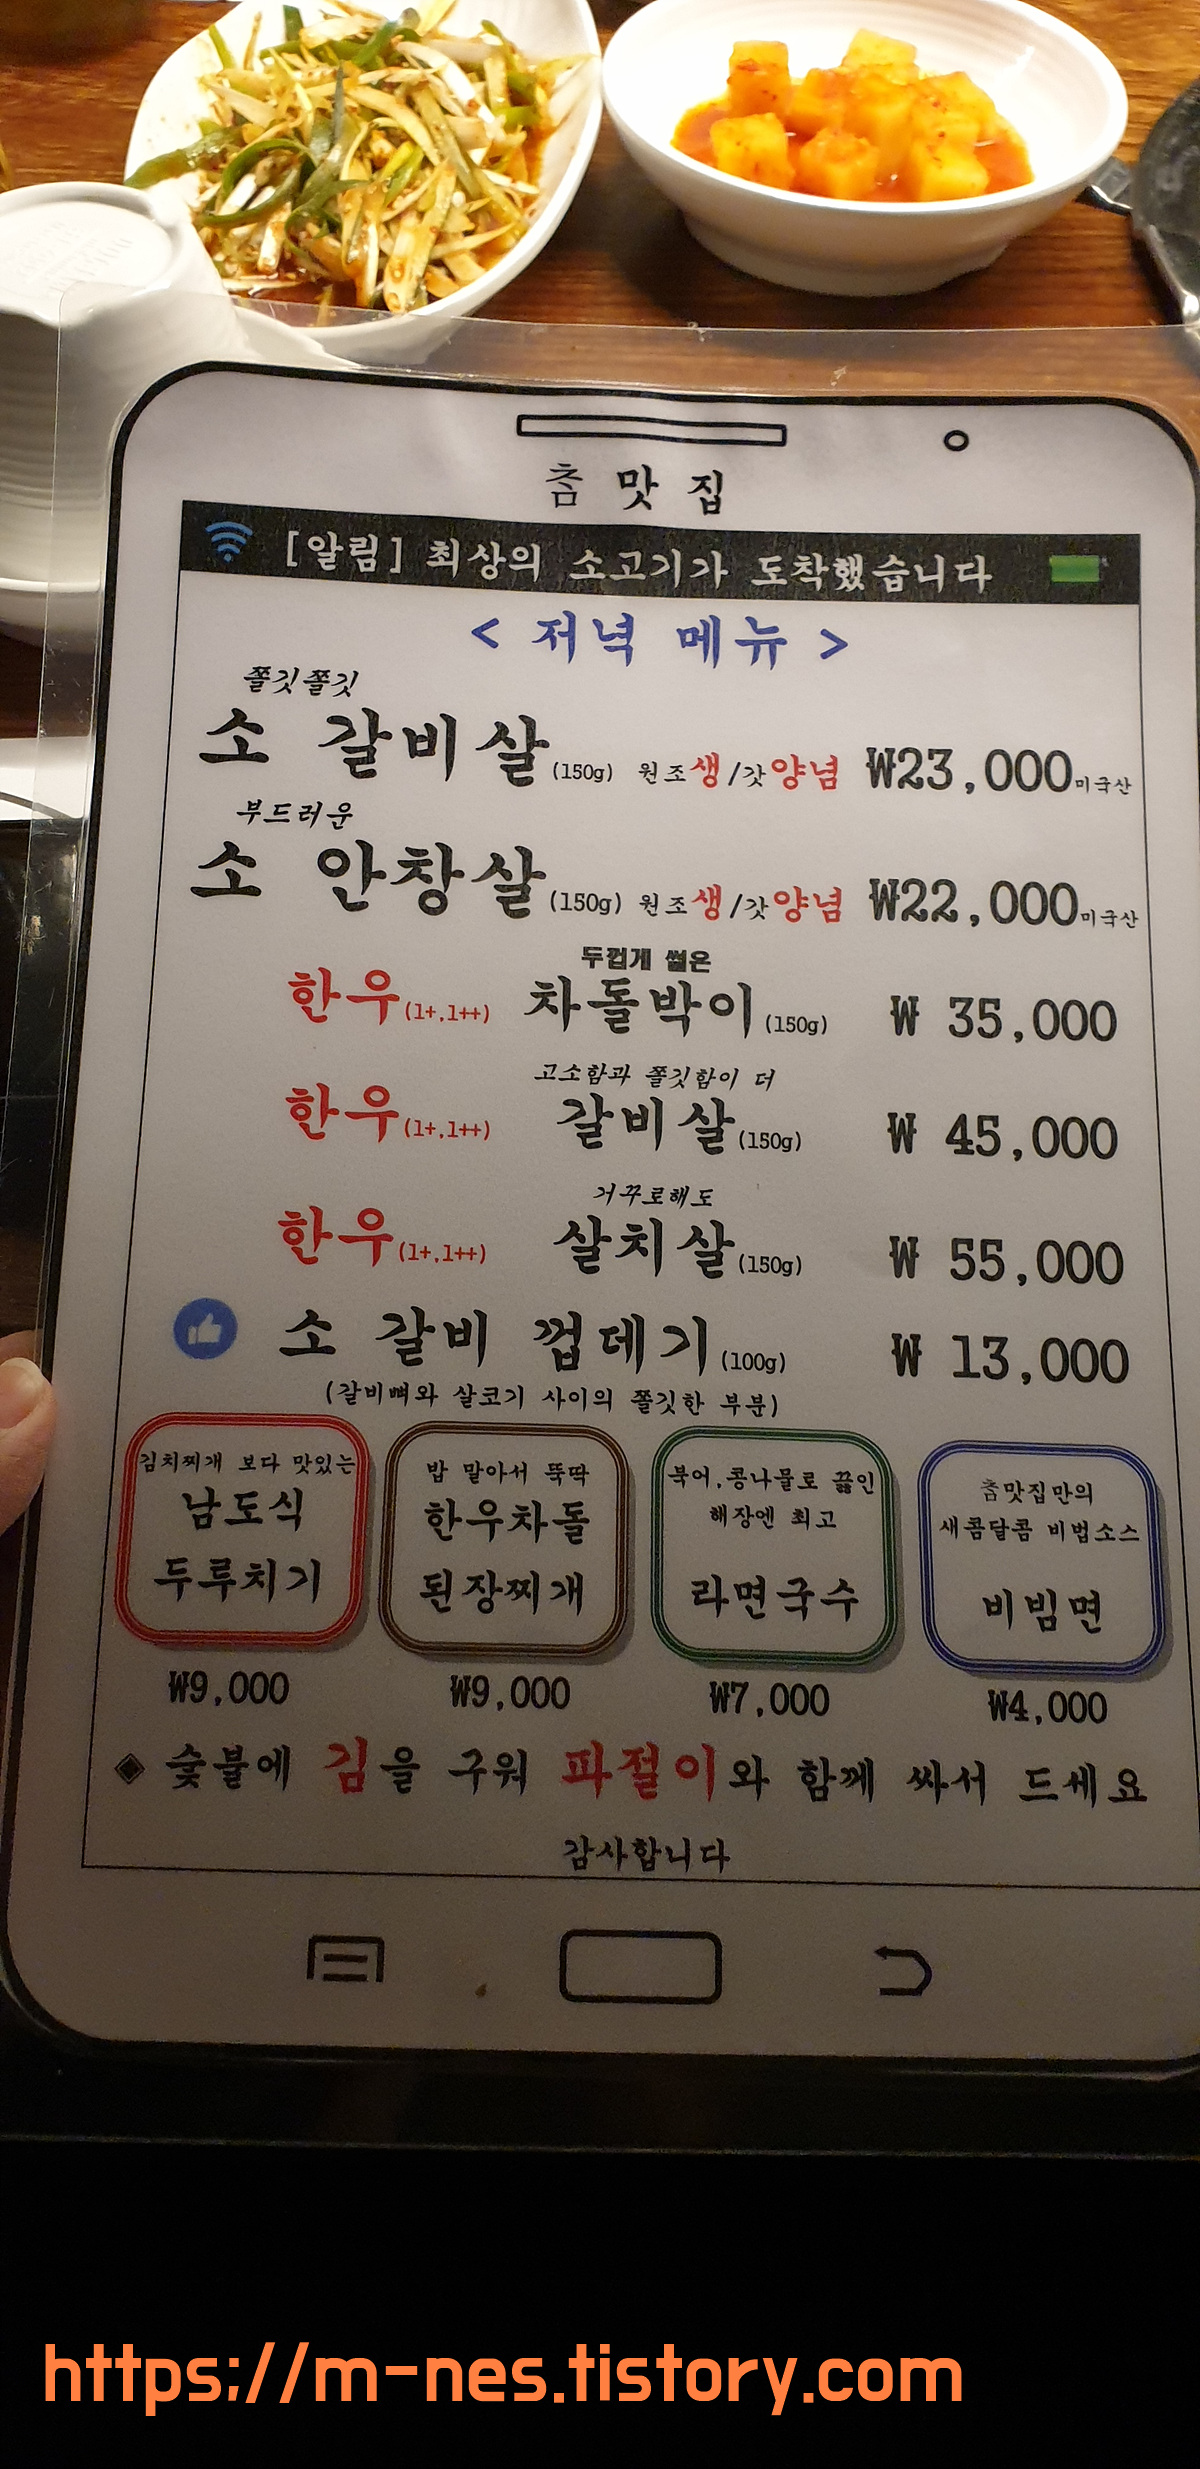 촘 맛 집
[알림] 최상의 소고기가 도착했습니다
< 저녁 메뉴 >
쫄깃쫄깃
소 갈비살(150g) 원조생/갓양념 ₩23,000미국산
부드러운
소 안창살(150g) 원조생/갓양념 ₩22,000미국산
두껍게 썰은
한우(1+,1++) 차돌박이(150g) ₩ 35,000
고소함과 쫄깃함이 더
한우(1+,1++) 갈비살(150g) ₩ 45,000
거꾸로해도
한우(1+,1++) 살치살(150g) ₩ 55,000
소 갈비 껍데기(100g) ₩ 13,000
(갈비뼈와 살코기 사이의 쫄깃한 부분)
김치찌개 보다 맛있는
남도식
두루치기
₩9,000
밥 말아서 뚝딱
한우차돌
된장찌개
₩9,000
북어,콩나물로 끓인
해장엔 최고
라면국수
₩7,000
촘맛집만의
새콤달콤 비법소스
비빔면
₩4,000
◈ 숯불에 김을 구워 파절이와 함께 싸서 드세요
감사합니다
https://m-nes.tistory.com